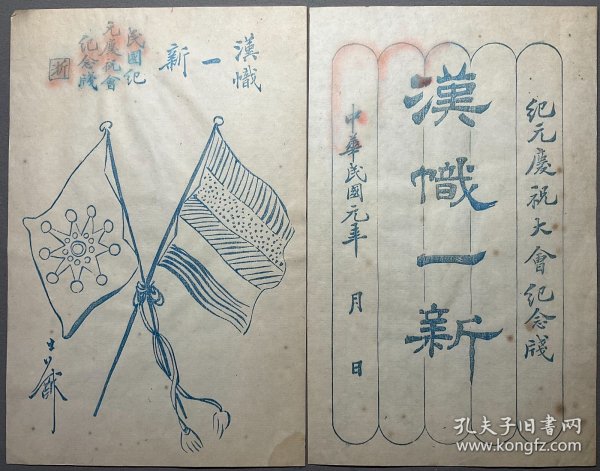 漢幟
一新
民國紀
元慶祝會
紀念牋
紀元慶祝大會紀念牋
漢幟一新
中華民國元年 月 日
孔夫子旧书网
www.kongfz.com